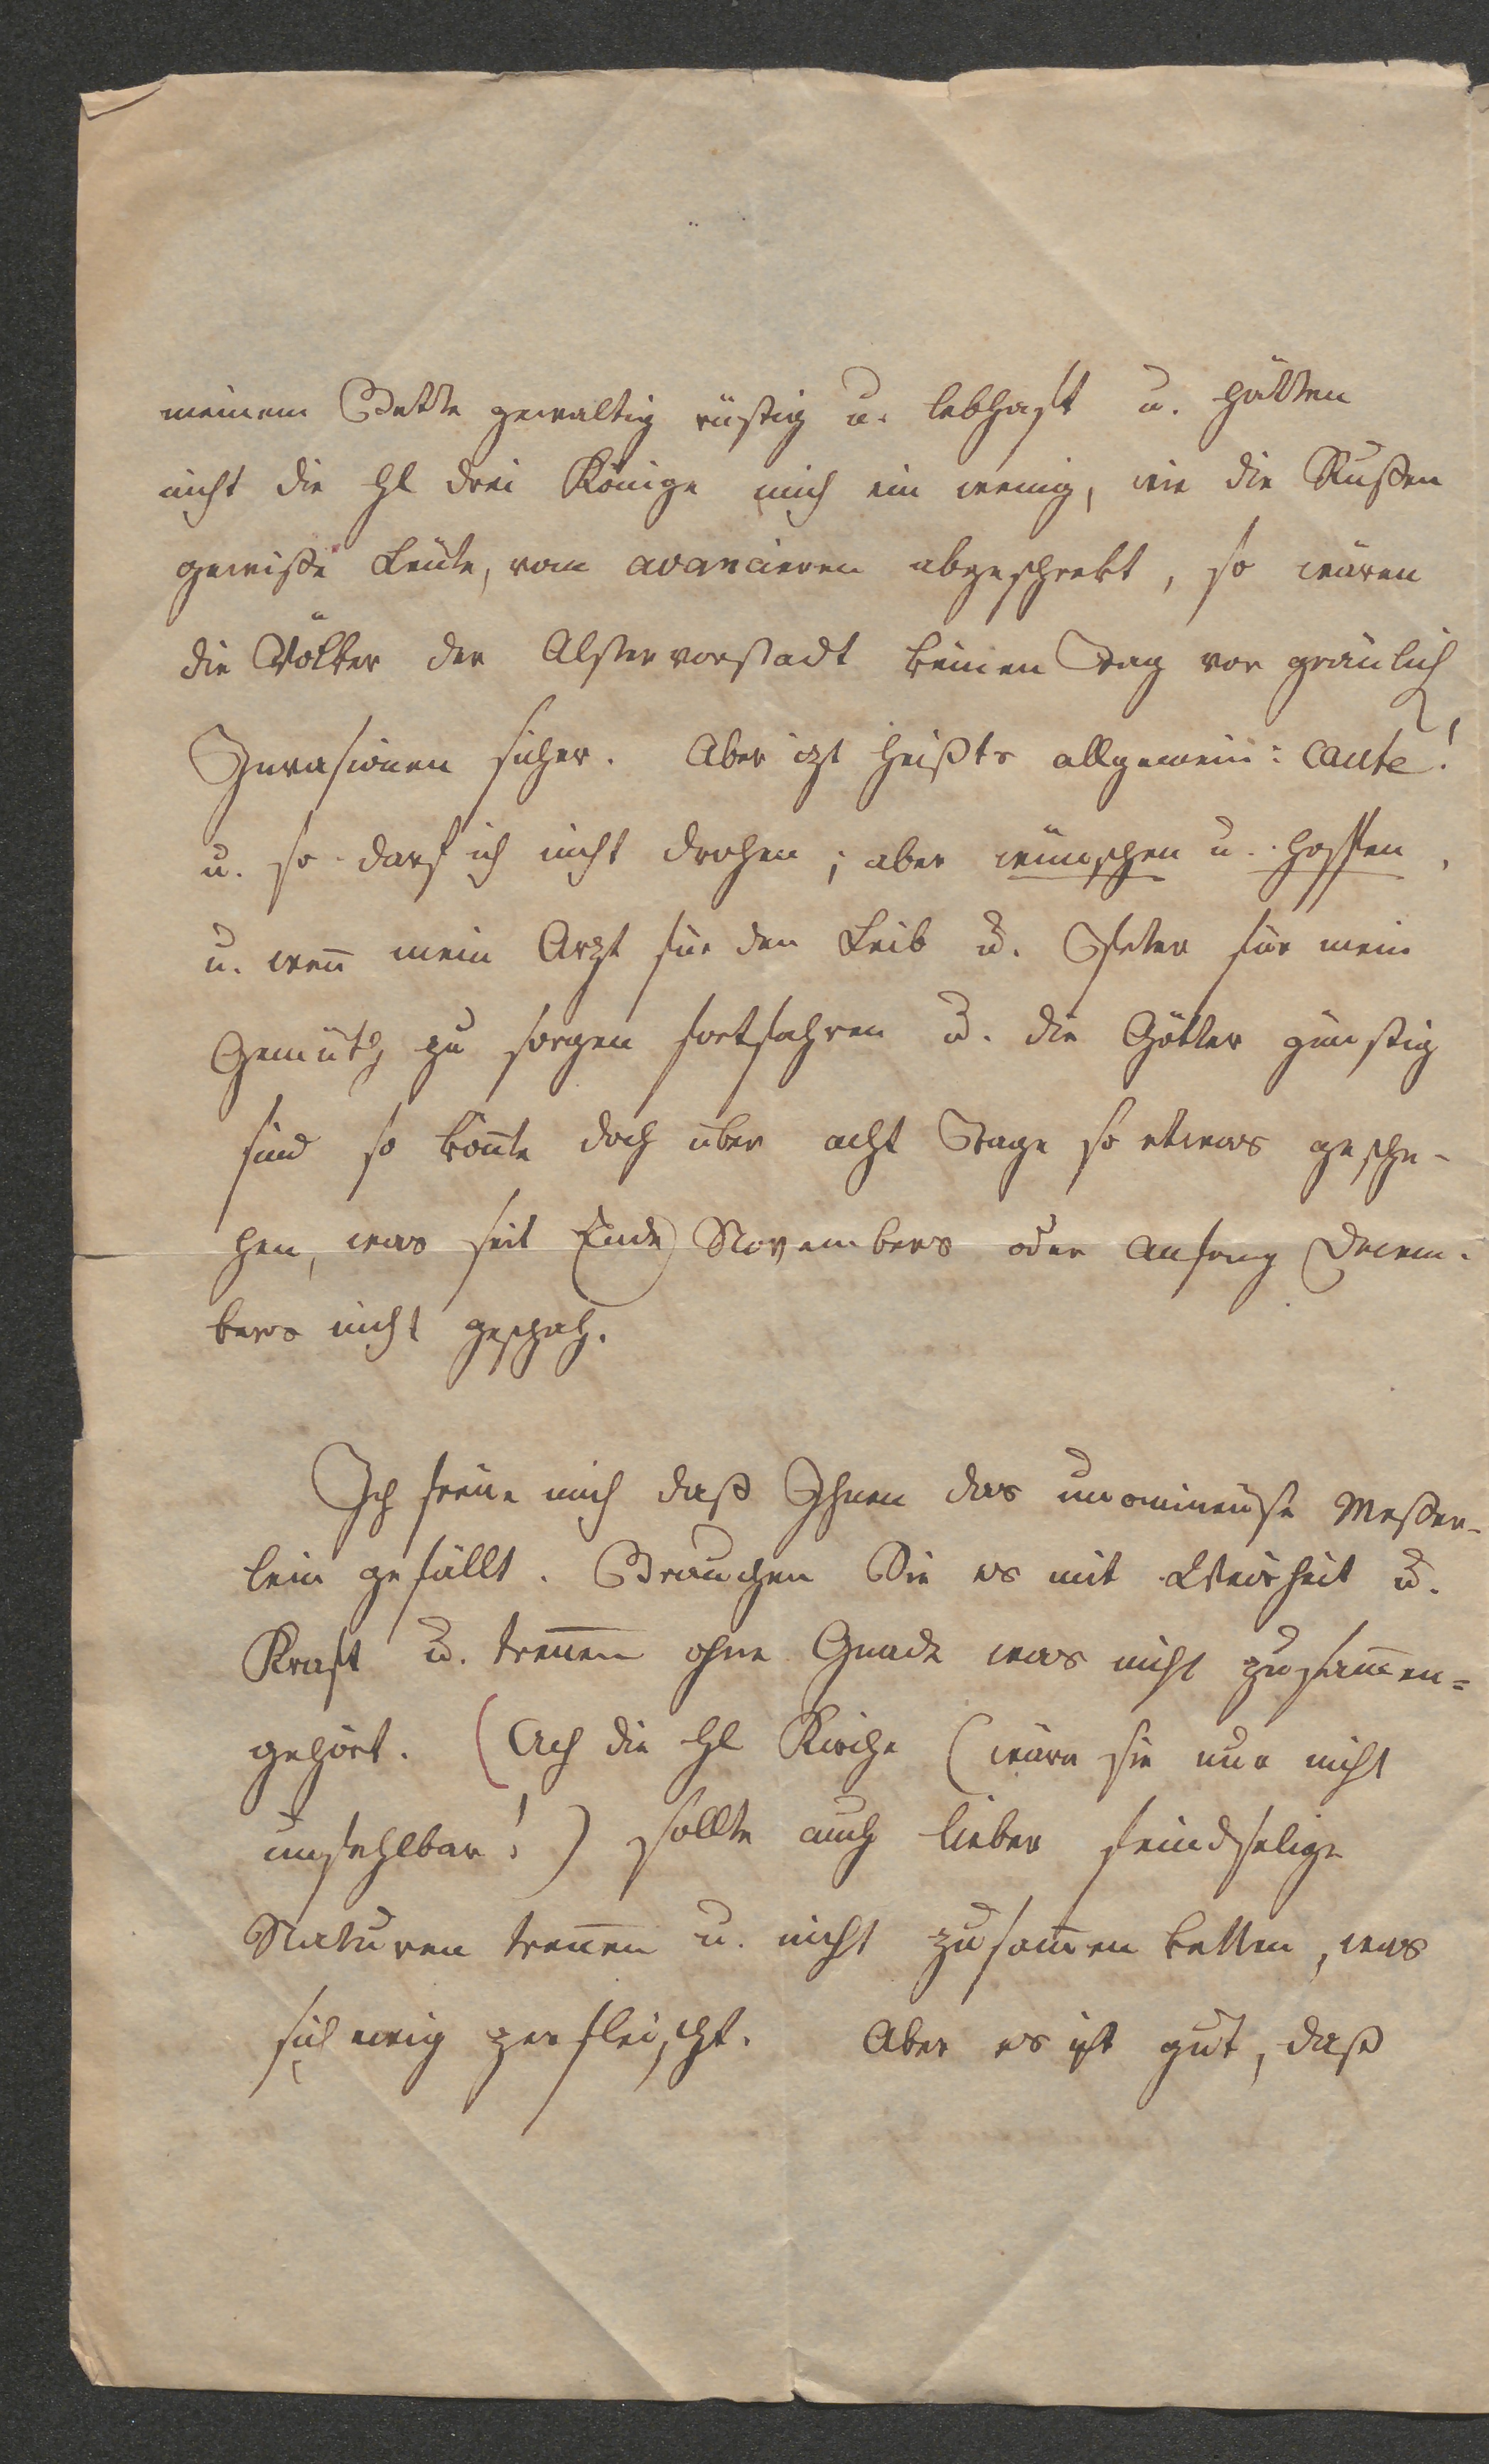 meinem Bette gewaltig rüstig u. lebhaft u. hätten
nicht die hl drei Könige mich ein wenig, wie die Rußen
gewiße Leute, vom avancieren abgeschrekt, so wären
die Völker der Alstervorstadt keinen Tag vor gräulich
Invasionen sicher. Aber izt heißts allgemein: caute!
u. so darf ich nicht drohen; aber wünschen u. hoffen,
u. weñ mein Arzt für den Leib u. für mein
Gemüth zu sorgen fortfahren u. die Götter günstig
sind so köñte doch über acht Tage so etwas gesche-
hen, was seit Ende Novembers oder Anfang Decem-
bers nicht geschah.
Ich freue mich daß Ihnen das unomineuse Meßer-
lein gefällt. Brauchen Sie es mit Weisheit u.
Kraft u. treñen ohne Gnade was nicht zusam̄en=
gehört. (Ach die hl Kirche (wäre sie nur nicht
unfehlbar!) sollte auch lieber feindselige
Naturen treñen u. nicht zusam̄en ketten, was
sich ewig zerfleischt. Aber es ist gut, daß